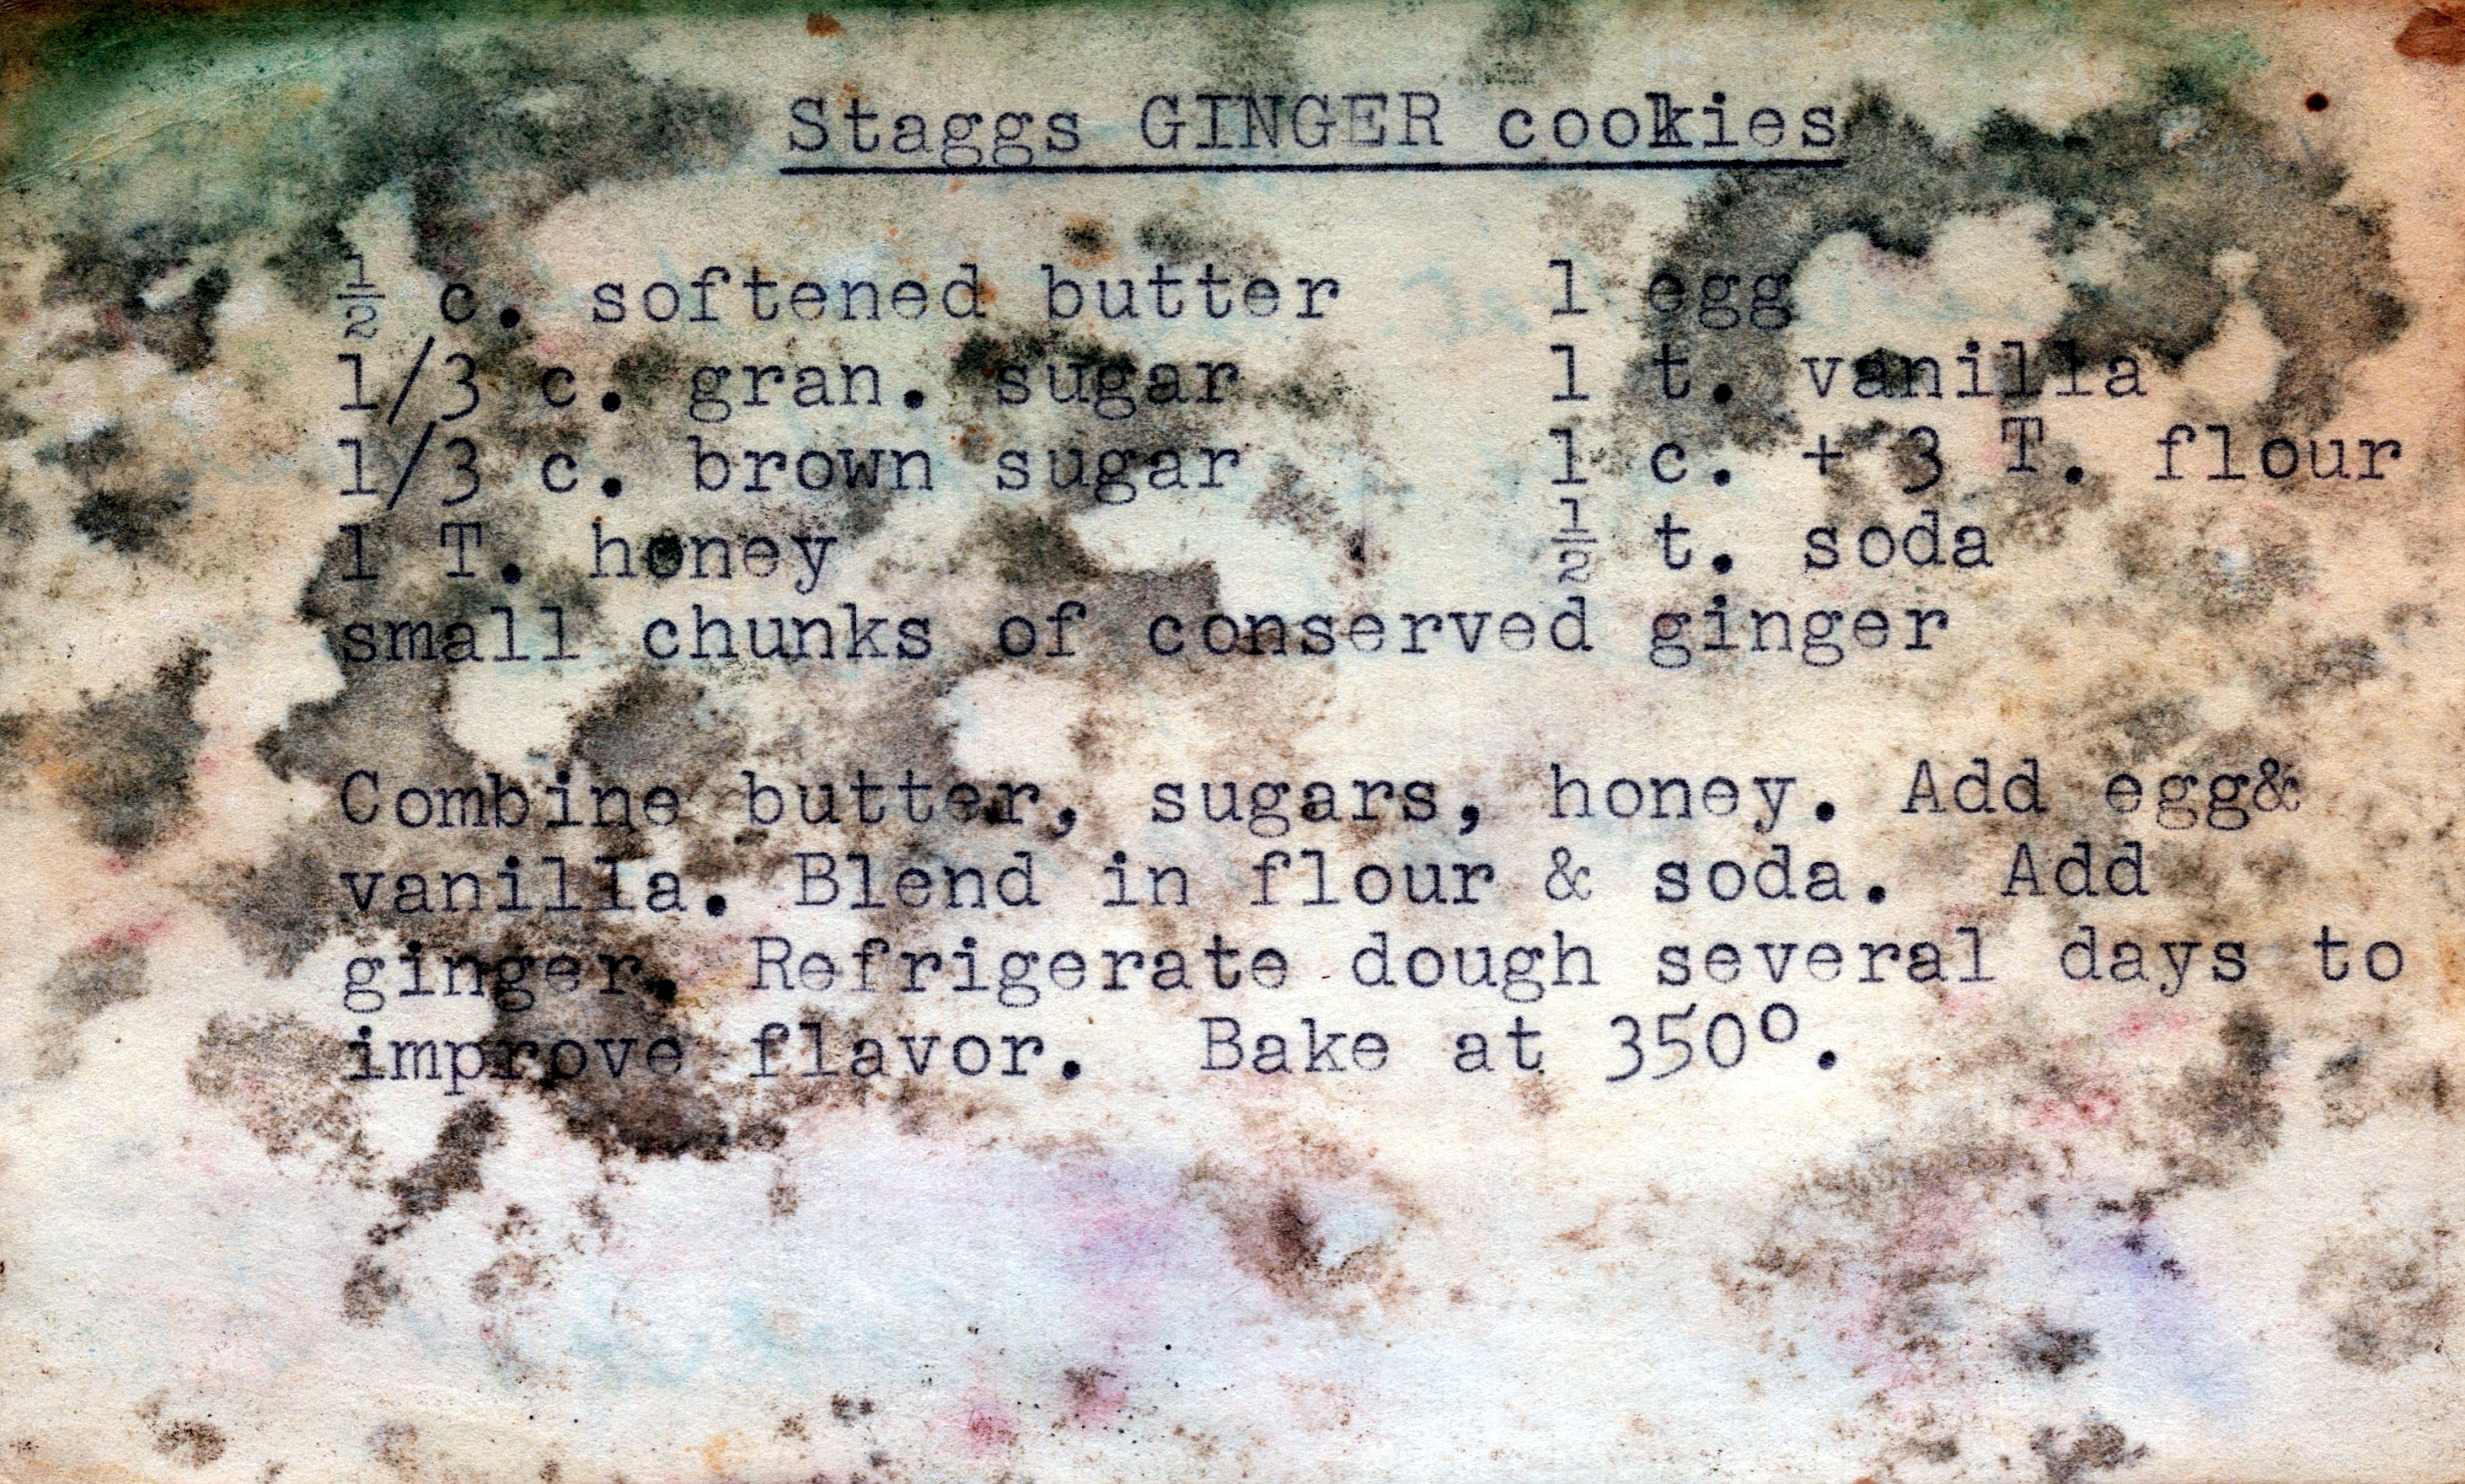 Staggs GINGER cookies
½ c. softened butter 1 egg
1/3 c. gran. sugar 1 t. vanilla
1/3 c. brown sugar 1 c. + 3 T. flour
1 T. honey ½ t. soda
small chunks of conserved ginger
Combine butter, sugars, honey. Add egg&
vanilla. Blend in flour & soda. Add
ginger. Refrigerate dough several days to
improve flavor. Bake at 350º.